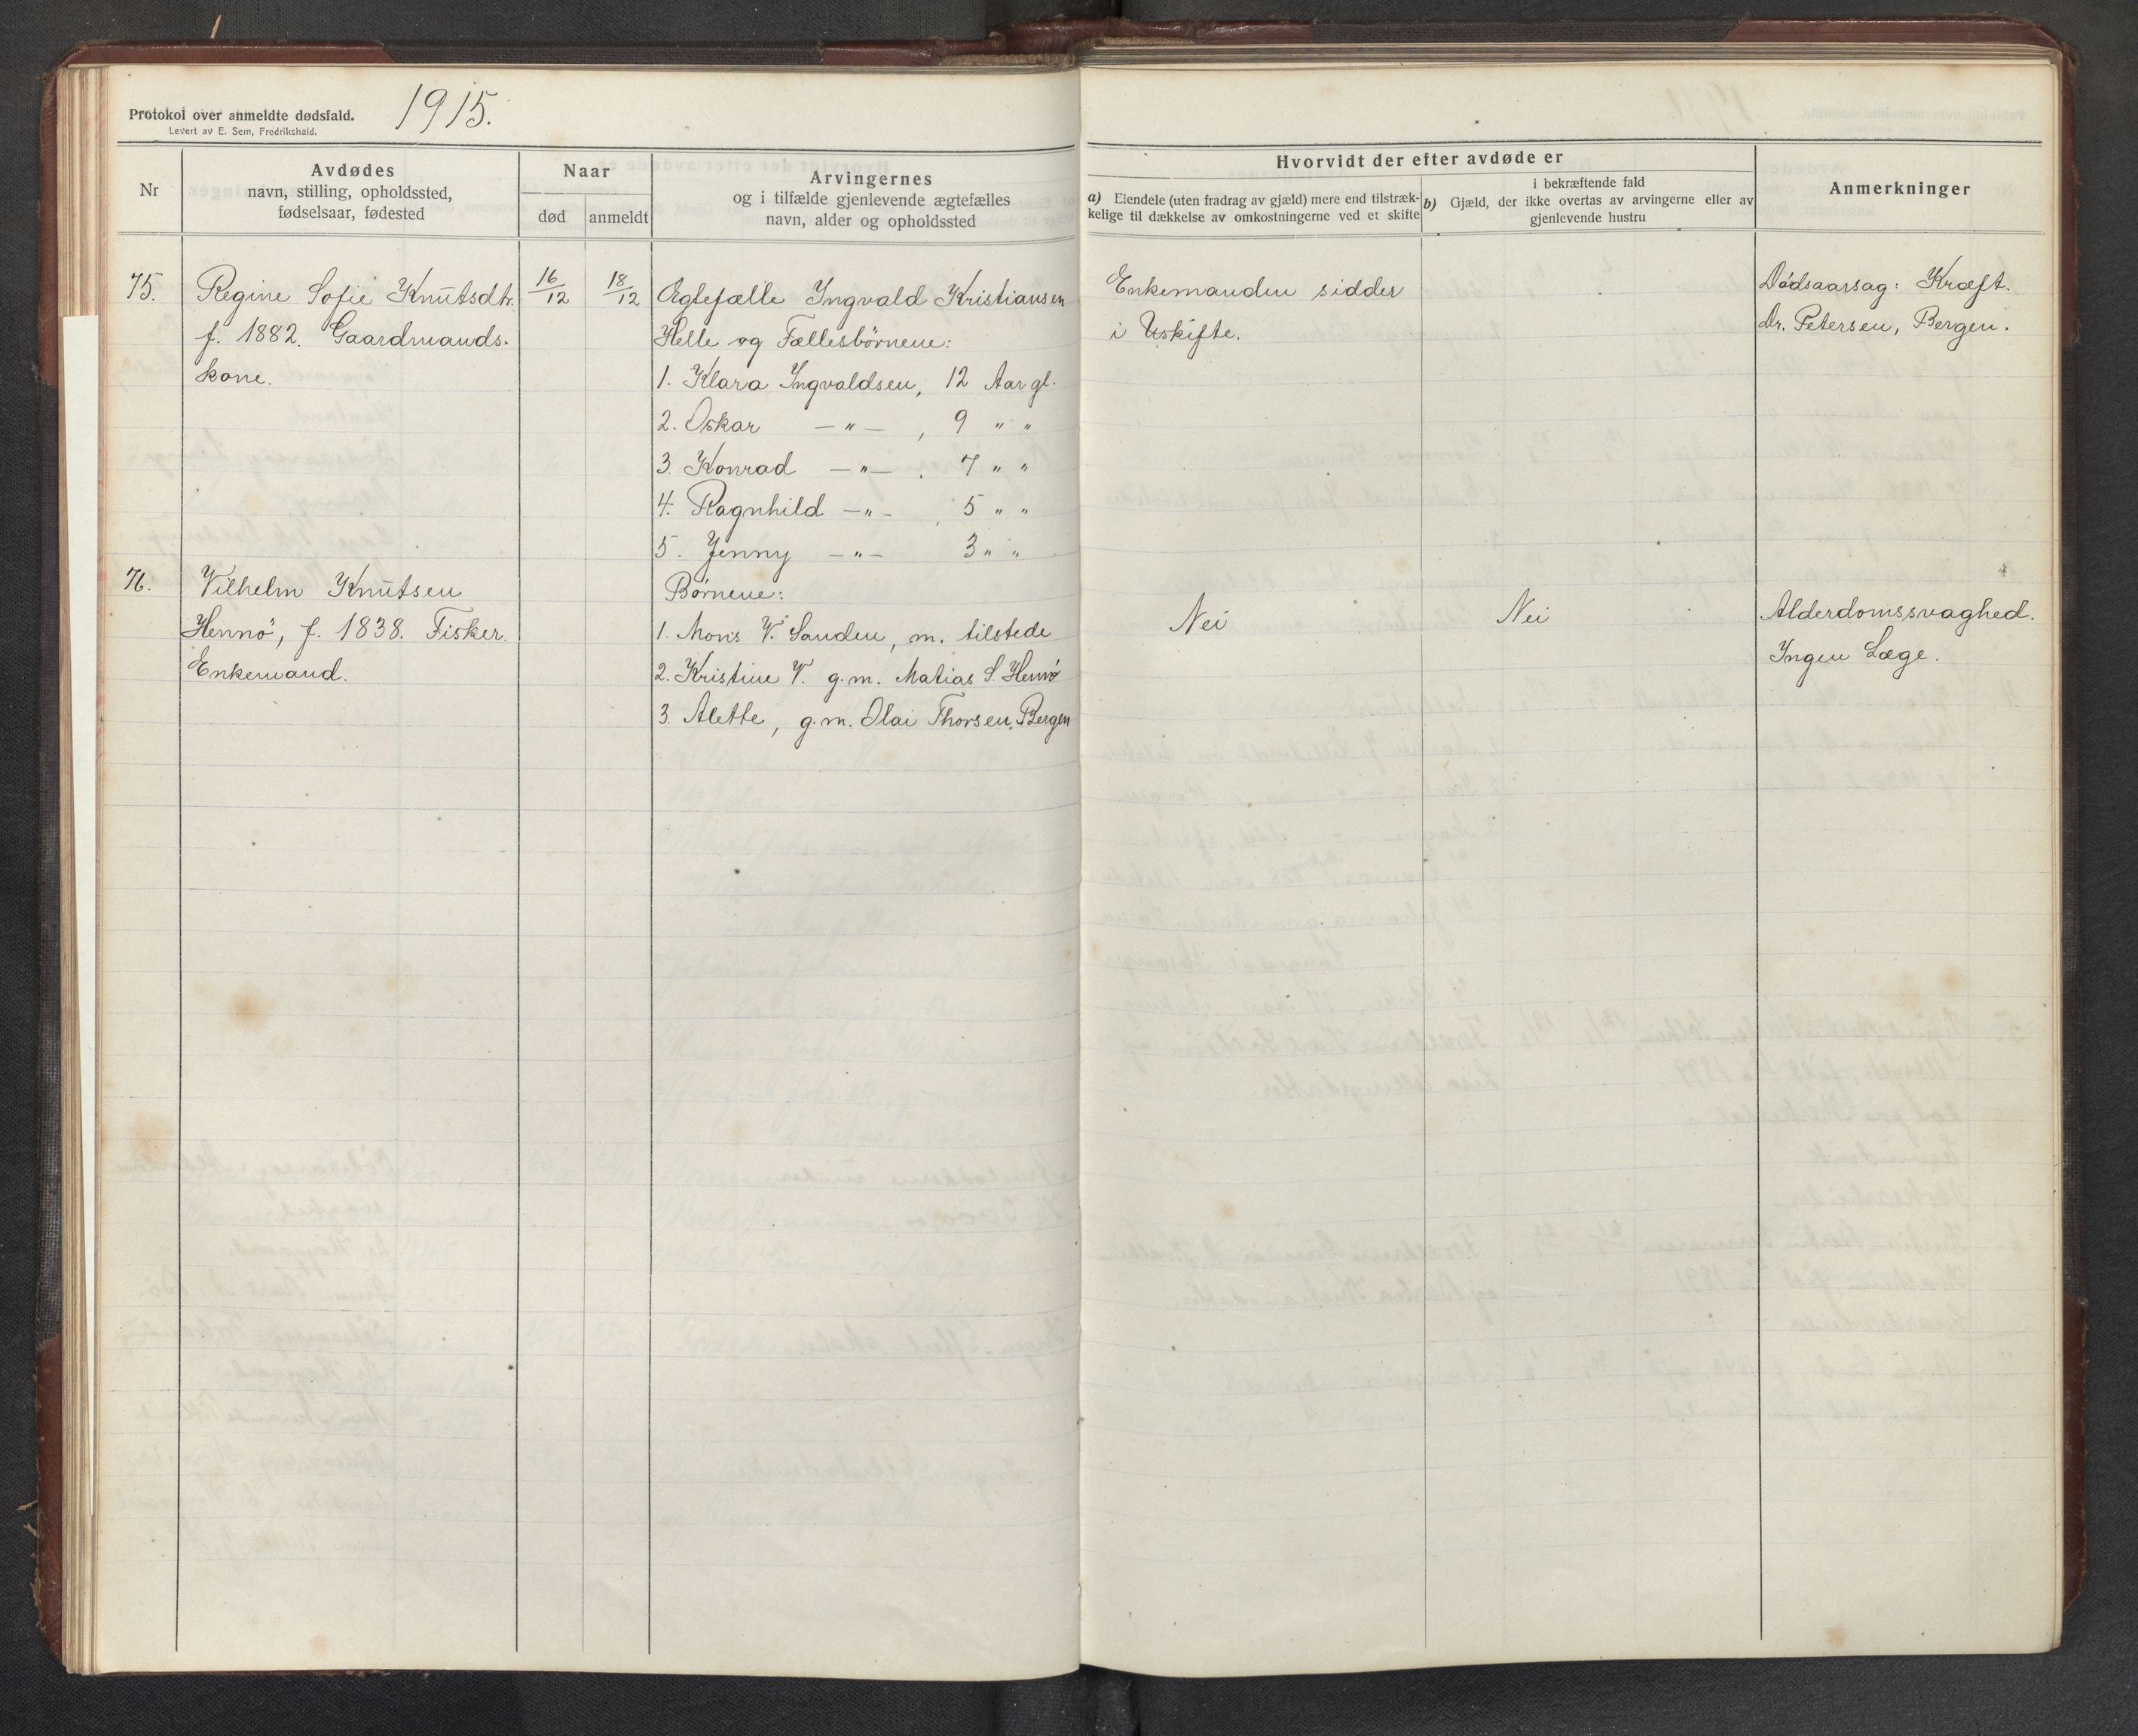 Protokol over anmeldte dødsfald.
Levert av E. Sem, Fredrikshald.
1915.
Nr
Avdødes
navn, stilling, opholdssted,
fødselsaar, fødested
Naar
død
anmeldt
Arvingernes
og i tilfælde gjenlevende ægtefælles
navn, alder og opholdssted
Hvorvidt der efter avdøde er
a) Eiendele (uten fradrag av gjæld) mere end tilstræk-
kelige til dækkelse av omkostningerne ved et skifte
i bekræftende fald
b) Gjæld, der ikke overtas av arvingerne eller av
gjenlevende hustru
Anmerkninger
75.
Regine Sofie Knutsdtr.
f. 1882. Gaardmands-
kone.
16/12
18/12
Egtefælle Ingvald Kristiansen
Helle og Fællesbörnene:
1. Klara Ingvaldsen, 12 Aar gl.
2. Oskar —"— , 9 " "
3. Konrad —"— . 7 " "
4. Ragnhild —"— , 5 " "
5. Jenny —"— 3 " "
Enkemanden sidder
i Uskifte.
Dödsaarsag: Kræft.
Dr. Petersen, Bergen.
76.
Vilhelm Knutsen
Hennö, f. 1838. Fisker.
Enkemand.
Börnene:
1. Mons V. Sanden, m. tilstede
2. Kristine V. g.m. Matias S. Hennö
3. Alette, g.m. Olai Thorsen, Bergen
Nei
Nei
Alderdomssvaghed.
Ingen Læge.